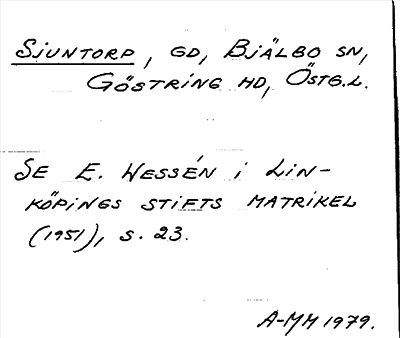 Sjuntorp, gd, Bjälbo sn,
Göstring hd, Östg.l.
Se E. Wessén i Lin-
köpings stifts matrikel
(1951), s. 23.
A-MM 1979.